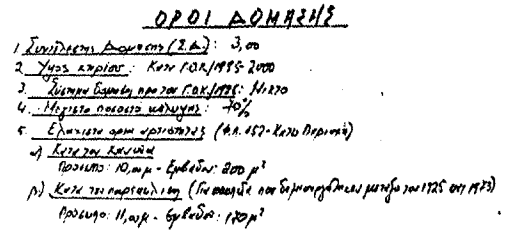 ΟΡΟΙ ΔΟΜΗΣΗΣ
1. Συντελεστης Δομησης (Σ.Δ): 3,00
2. Υψος κτιριου: Κατα Γ.Ο.Κ/1985-2000
3. Συστημα δομησης προ του Γ.Ο.Κ/1985: Μικτο
4. Μεγιστο ποσοστο καλυψης: 70%
5. Ελαχιστα ορια αρτιοτητας (Φ.Π. 152-Κατω Περιοχή)
α) Κατα τον Κανονα
Προσωπο: 10,00μ - Εμβαδον: 200 μ²
β) Κατα την παρεκκλιση (Για οικοπεδα που δημιουργηθηκαν μεταξυ του 1925 και 1973)
Προσωπο: 11,00μ - Εμβαδον: 170μ²